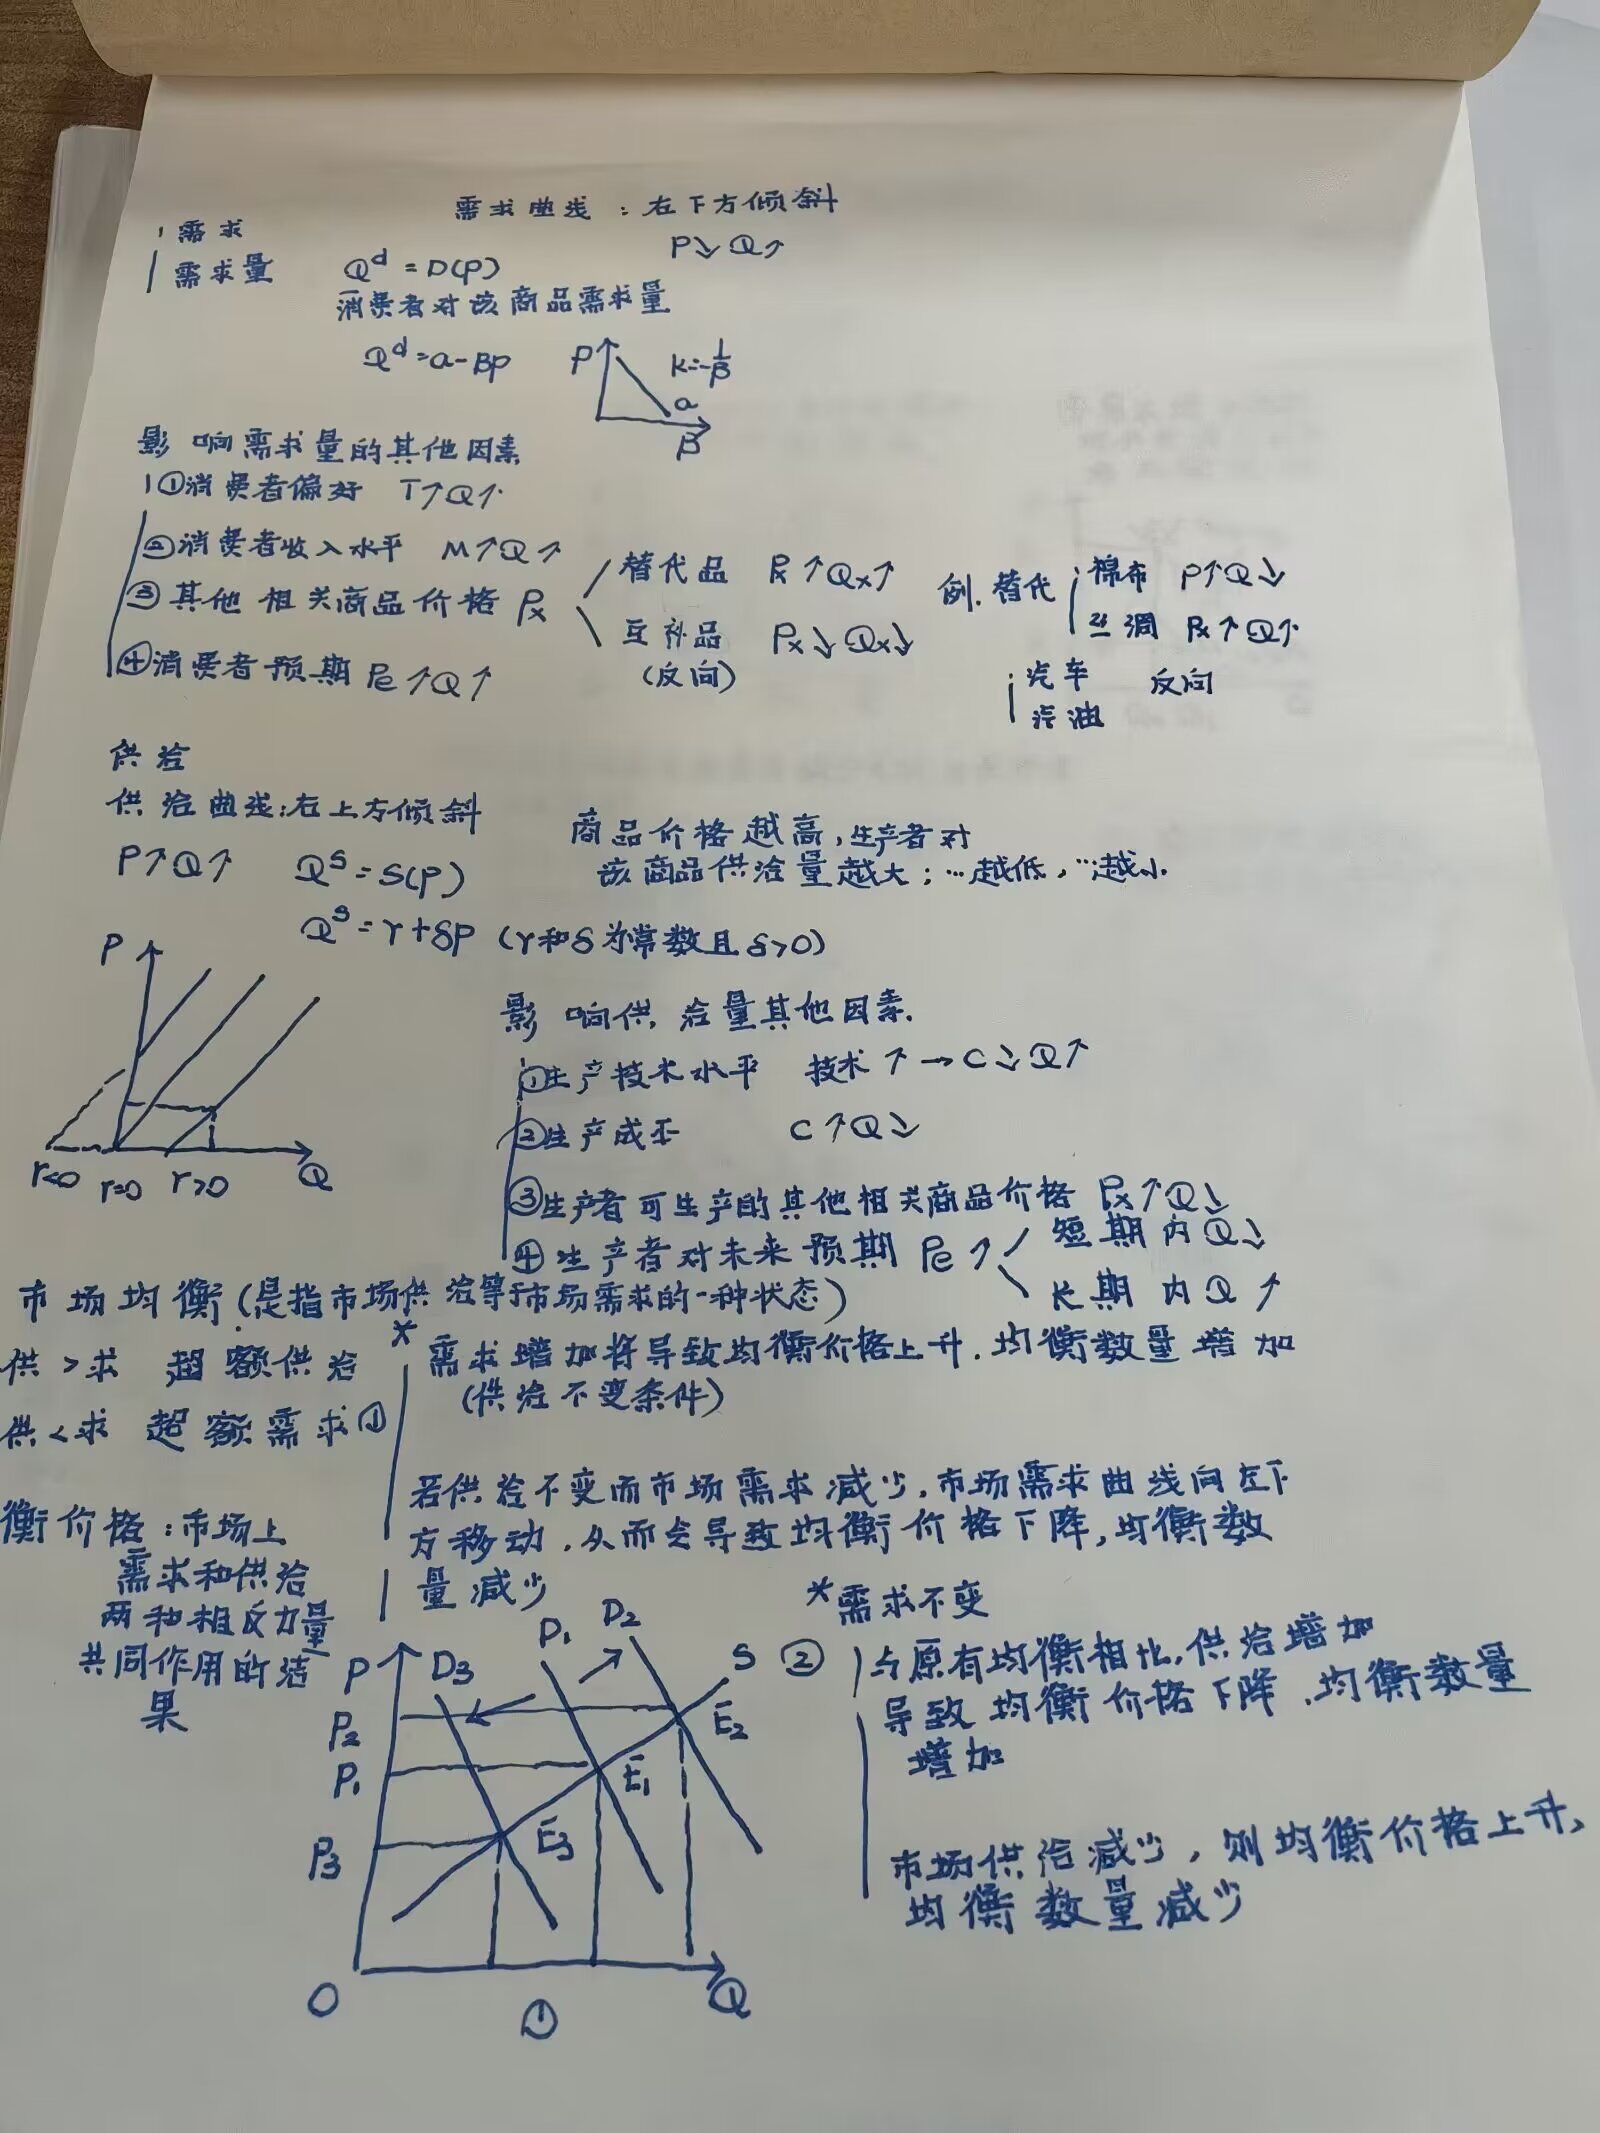 需求曲线：右下方倾斜
需求
P↘Q↗
需求量 Qᵈ=D(P)
消费者对该商品需求量
Qᵈ=a-βp
P K=-1/β
a
β
影响需求量的其他因素
①消费者偏好 T↑Q↑
②消费者收入水平 M↑Q↑
③其他相关商品价格 Px
替代品 Px↑Qx↑
互补品 Px↓Qx↓
(反向)
例.替代
棉布 P↑Q↓
丝调 Px↑Q↑
汽车 反向
汽油
④消费者预期 Pe↑Q↑
供给
供给曲线:右上方倾斜
P↑Q↑ Qˢ=S(P)
商品价格越高,生产者对
该商品供给量越大；…越低，…越小
Qˢ=γ+δp (γ和δ为常数且δ>0)
P
γ<0 γ=0 γ>0 Q
影响供给量其他因素.
①生产技术水平 技术↑→C↓Q↑
②生产成本 C↑Q↓
③生产者可生产的其他相关商品价格 Px↑Q↓
④生产者对未来预期 Pe↑
短期内Q↓
长期内Q↑
市场均衡(是指市场供给等于市场需求的一种状态)
供>求 超额供给
供<求 超额需求
衡价格:市场上
需求和供给
两种相反力量
共同作用的结
果
*
①
需求增加将导致均衡价格上升.均衡数量增加
(供给不变条件)
若供给不变而市场需求减少,市场需求曲线向左下
方移动.从而会导致均衡价格下降,均衡数
量减少
P D3 P1 D2 S
P2 E2
P1 E1
P3 E3
O Q
①
*需求不变
② 与原有均衡相比.供给增加
导致均衡价格下降.均衡数量
增加
市场供给减少,则均衡价格上升、
均衡数量减少